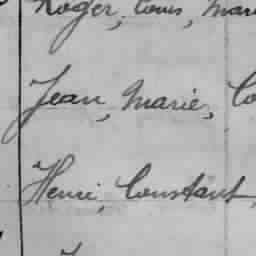 Roger, Louis, Mari
Jean, Marie, Co
Henri, Constant,